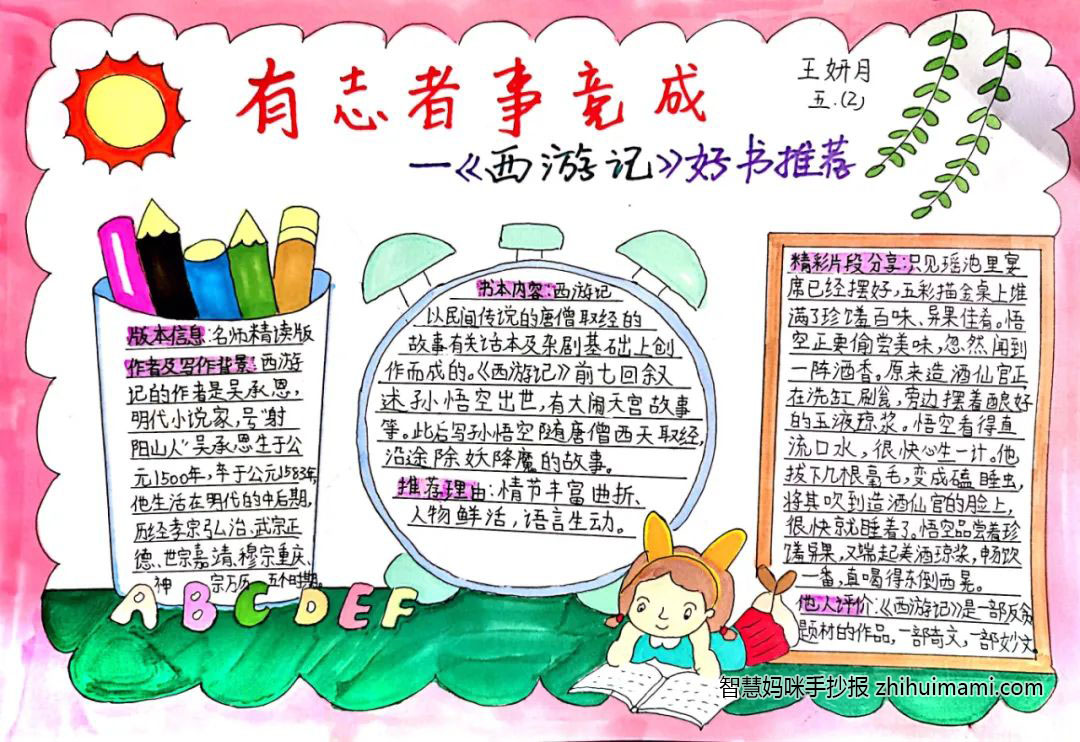 有志者事竟成
王妍月
五.(2)
—《西游记》好书推荐
版本信息:名师精读版
作者及写作背景:西游
记的作者是吴承恩,
明代小说家,号"射
阳山人"吴承恩生于公
元1500年,卒于公元1583年
他生活在明代的中后期,
历经孝宗弘治、武宗正
德、世宗嘉靖、穆宗重庆、
神 宗万历 五个时期。
ABCDEF
书本内容:西游记
以民间传说的唐僧取经的
故事有关话本及杂剧基础上创
作而成的。《西游记》前七回叙
述孙悟空出世,有大闹天宫故事
等。此后写孙悟空随唐僧西天取经,
沿途除妖降魔的故事。
推荐理由:情节丰富曲折、
人物鲜活,语言生动。
精彩片段分享:只见瑶池里宴
席已经摆好,五彩描金桌上堆
满了珍馐百味、异果佳肴。悟
空正要偷尝美味,忽然闻到
一阵酒香。原来造酒仙官正
在洗缸刷瓮,旁边摆着酿好
的玉液琼浆。悟空看得直
流口水,很快心生一计。他
拔下几根毫毛,变成瞌睡虫,
将其吹到造酒仙官的脸上,
很快就睡着了。悟空品尝着珍
馐异果,又端起美酒琼浆,畅饮
一番,直喝得东倒西晃。
他人评价:《西游记》是一部反贪
题材的作品,一部奇文,一部妙文。
智慧妈咪手抄报 zhihuimami.com